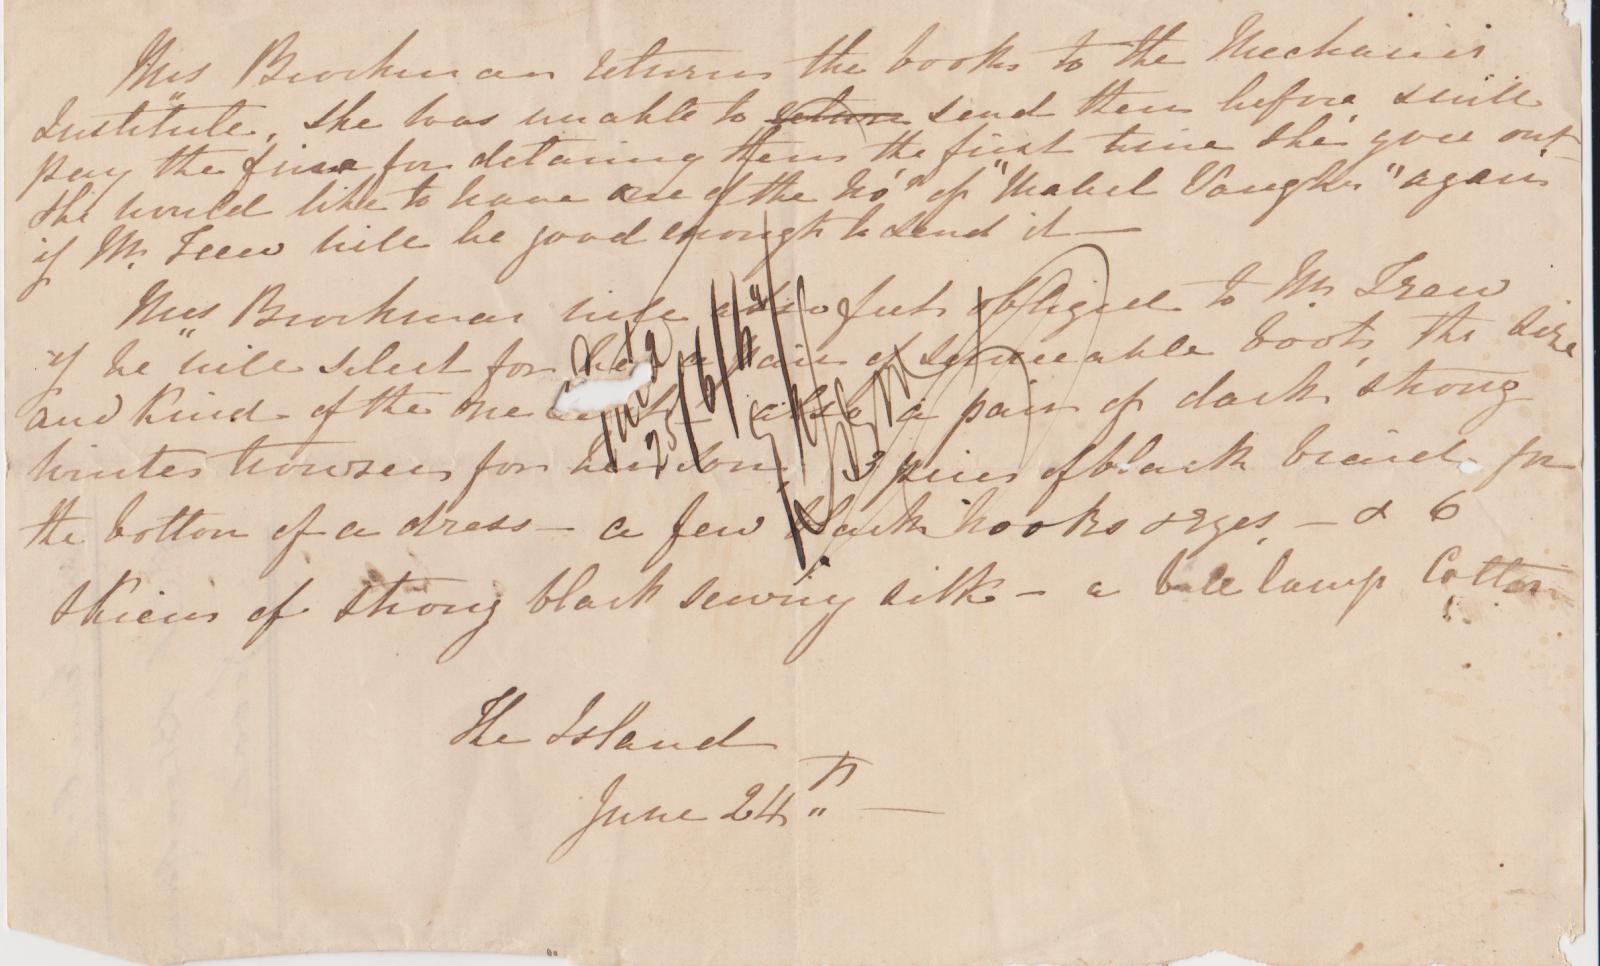 Mrs Brockman returns the books to the Mechanics
Institute, she was unable to return send them before & will
pay the fine for detaining them the first time she goes out
She would like to have one of the No's of "Mabel Vaughn" again
if Mr. Trew will be good enough to send it —
Mrs Brockman will also feel obliged to Mr Trew
if he will select for her a pair of serviceable boots, the size
and kind of the one — also a pair of dark strong
winter trowsers for her son, 3 pieces of black braid for
the bottom of a dress — a few black hooks & eyes, — & 6
skiens of strong black sewing silk — a lamp Cotton
The Island
June 24th —
25/6/6